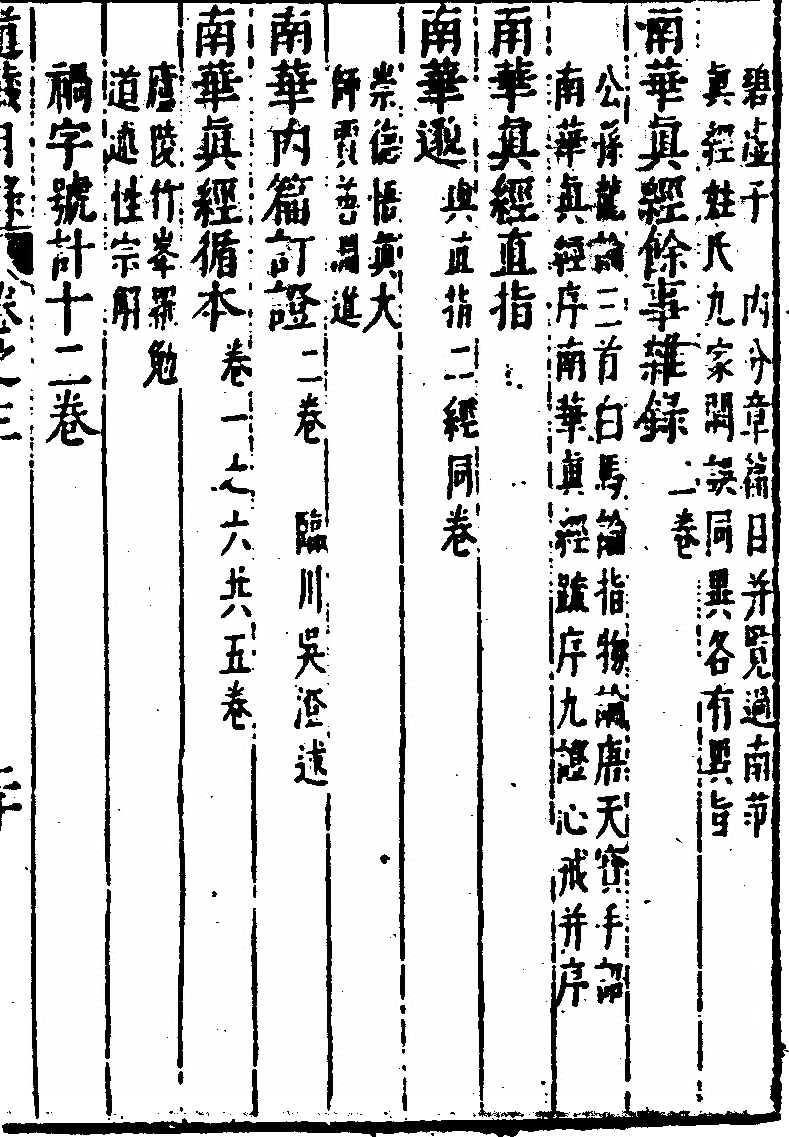 碧虛子 內分章篇目并覽過南華
真經姓氏九家闕誤同異各有異旨
南華真經餘事雜錄 二卷
公孫龍論三首白馬論指物論唐天寶手詔
南華真經序南華真經疏序九證心戒并序
南華真經直指
南華邈 與直指二經同卷
崇德悟真大
師賈善淵進
南華內篇訂證 二卷 臨川吳澄述
南華真經循本 卷一之六共五卷
廬陵竹峯羅勉
道述性宗解
禍字號計十二卷
道藏目錄 卷之三